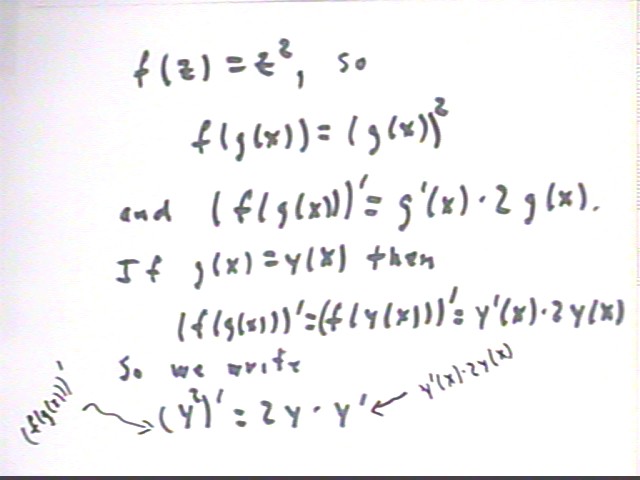 f(z) = z², so
f(g(x)) = (g(x))²
and (f(g(x)))' = g'(x) · 2 g(x).
If g(x) = y(x) then
(f(g(x)))' = (f(y(x)))' = y'(x) · 2y(x)
So we write
(f(g(x)))'
(y²)' = 2y · y'
y'(x) · 2y(x)